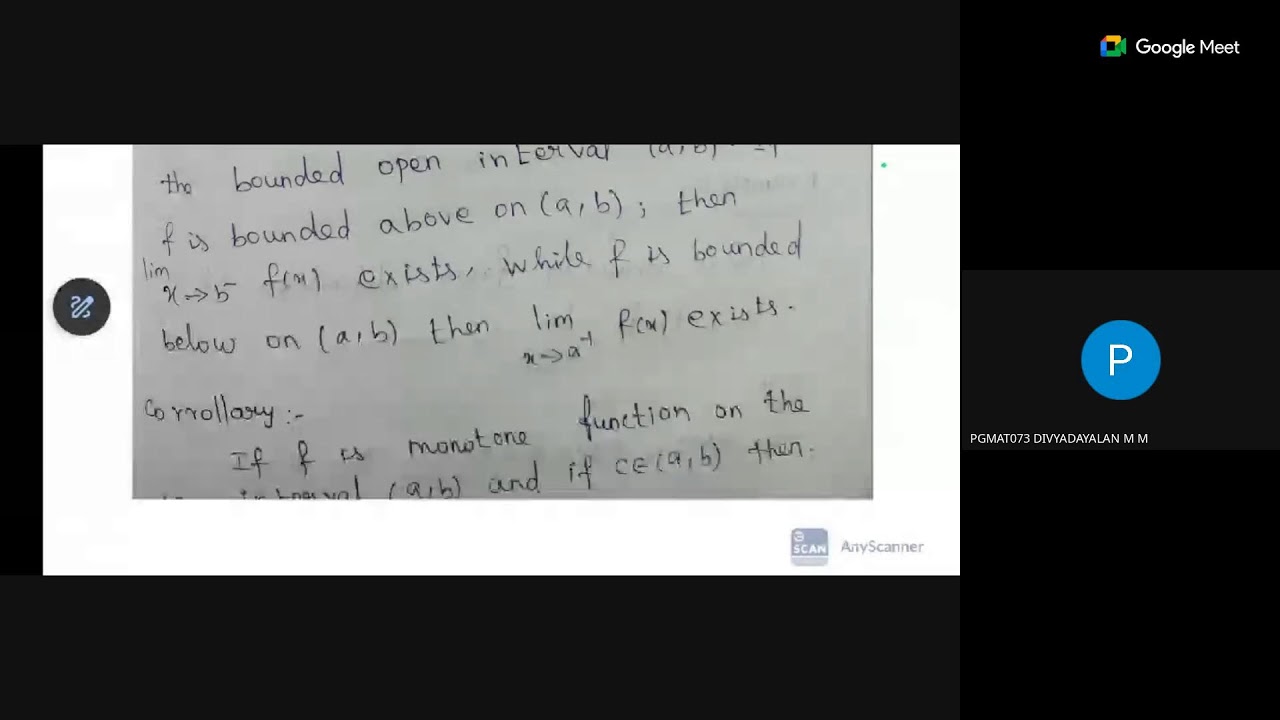 Google Meet
the bounded open interval (a,b). If
f is bounded above on (a,b); then
lim x→b⁻ f(x) exists, while f is bounded
below on (a,b) then lim x→a⁺ f(x) exists.
Corrollary:-
If f is monotone function on the
interval (a,b) and if c∈(a,b) then.
SCAN AnyScanner
P
PGMAT073 DIVYADAYALAN M M